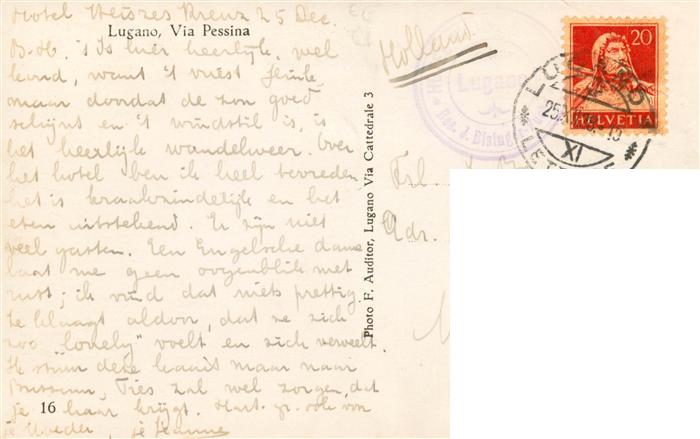 Hotel Weiszes Kreuz 25 Dec.
Lugano, Via Pessina
B.H. 't Is hier heerlijk, wel
koud, want 't vriest flink
maar doordat de zon goed
schijnt en 't windstil is, is
het heerlijk wandelweer. Over
het hotel ben ik heel tevreden
het is kraakzindelijk en het
eten uitstekend. Er zijn niet
veel gasten. Een Engelsche dame
laat me geen oogenblik met
rust; ik vind dat niets prettig
Ze klaagt aldoor, dat ze zich
zoo "lonely" voelt en zich verveelt.
Ik stuur deze kaart maar naar
Bussum, Ties zal wel zorgen, dat
je haar krijgt. Hart. gr. ook van
je Moeder, je Jeanne
16
Photo F. Auditor, Lugano Via Cattedrale 3
Holland
Lugano
Bes. J. Bising
20
HELVETIA
LUGANO
IX
Frl.
Adr.